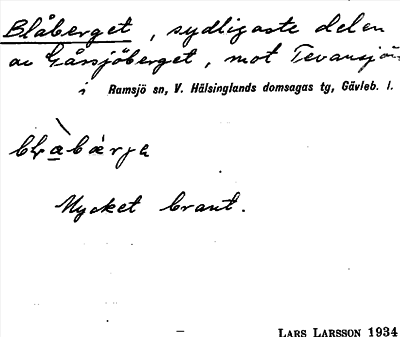 Blåberget, sydligaste delen
av Gåssjöberget, mot Tevansjön
i Ramsjö sn, V. Hälsinglands domsagas tg, Gävleb. l.
Mycket brant.
LARS LARSSON 1934